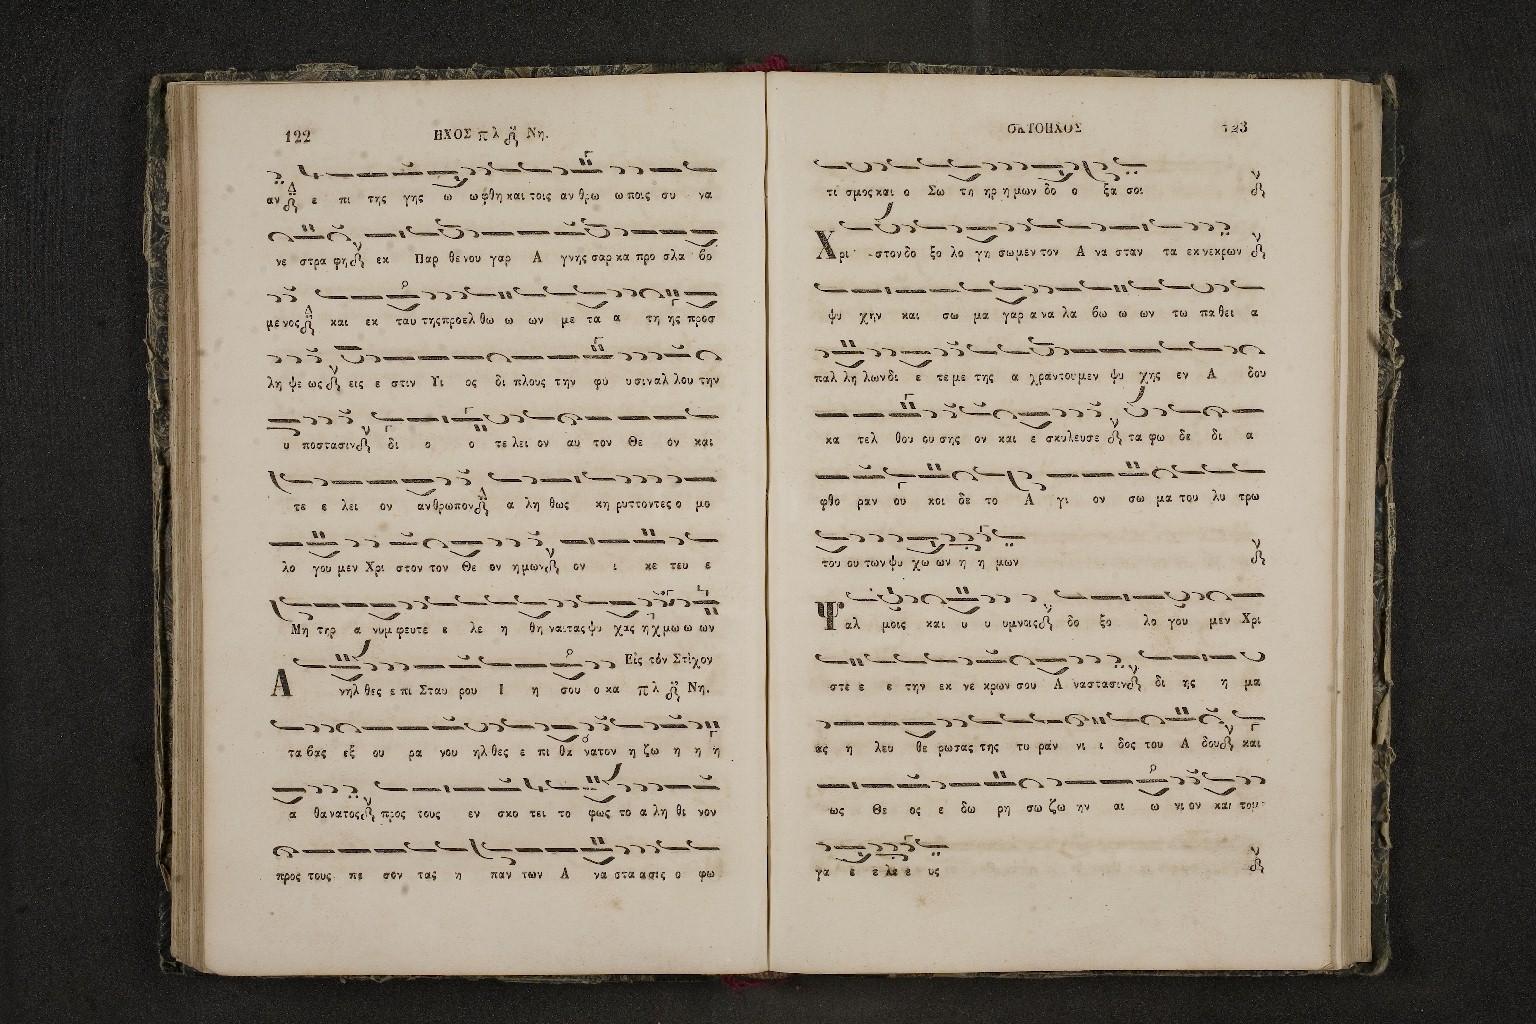 122
ΗΧΟΣ πλ Νη.
αν ε πι της γης ω ωφθη και τοις αν θρω ω ποις συ να
νε στρα φη εκ Παρ θε νου γαρ Α γνης σαρ κα προ σλα βο
με νος και εκ ταυ της προελ θω ω ων με τα α τη ης προσ
λη ψε ως εις ε στιν Υι ος δι πλους την φυ υ σιν αλ λου την
υ ποστασιν δι ο ο τε λει ον αυ τον Θε ον και
τε ε λει ον ανθρωπον α λη θως κη ρυττοντες ο μο
λο γου μεν Χρι στον τον Θε ον ημων ον ι κε τευ ε
Μη τηρ α νυμ φευτε ε λε η θη ναι τας ψυ χας η χ μω ω ων
Εἰς τόν Στίχον
Α νηλ θες ε πι Σταυ ρου Ι η σου ο κα πλ Νη.
τα βας εξ ου ρα νου ηλ θες ε πι θα νατον η ζω η η η
α θανατος προς τους εν σκο τει το φως το α λη θι νον
προς τους πε σον τας η παν των Α να στα ασις ο φω
ΟΚΤΟΗΧΟΣ
123
τι σμος και ο Σω τη ηρ η μων δο ο ξα σοι
Χρι στον δο ξο λο γη σωμεν τον Α να σταν τα εκ νεκρων
ψυ χην και σω μα γαρ α να λα βω ω ων τω πα θει α
παλ λη λων δι ε τε με της α χραντου μεν ψυ χης εν Α δου
κα τελ θου ου σης ον και ε σκυλευσε τα φω δε δι α
φθο ραν ου κοι δε το Α γι ον σω μα του λυ τρω
του ου των ψυ χω ων η η μων
Ψαλ μοις και υ υ υμνοις δο ξο λο γου μεν Χρι
στε ε ε την εκ νε κρων σου Α ναστασιν δι ης η μα
ας η λευ θε ρωσας της τυ ραν νι ι δος του Α δου και
ως Θε ος ε δω ρη σω ζω ην αι ω νι ον και το με
γα ε ε λε ε ος